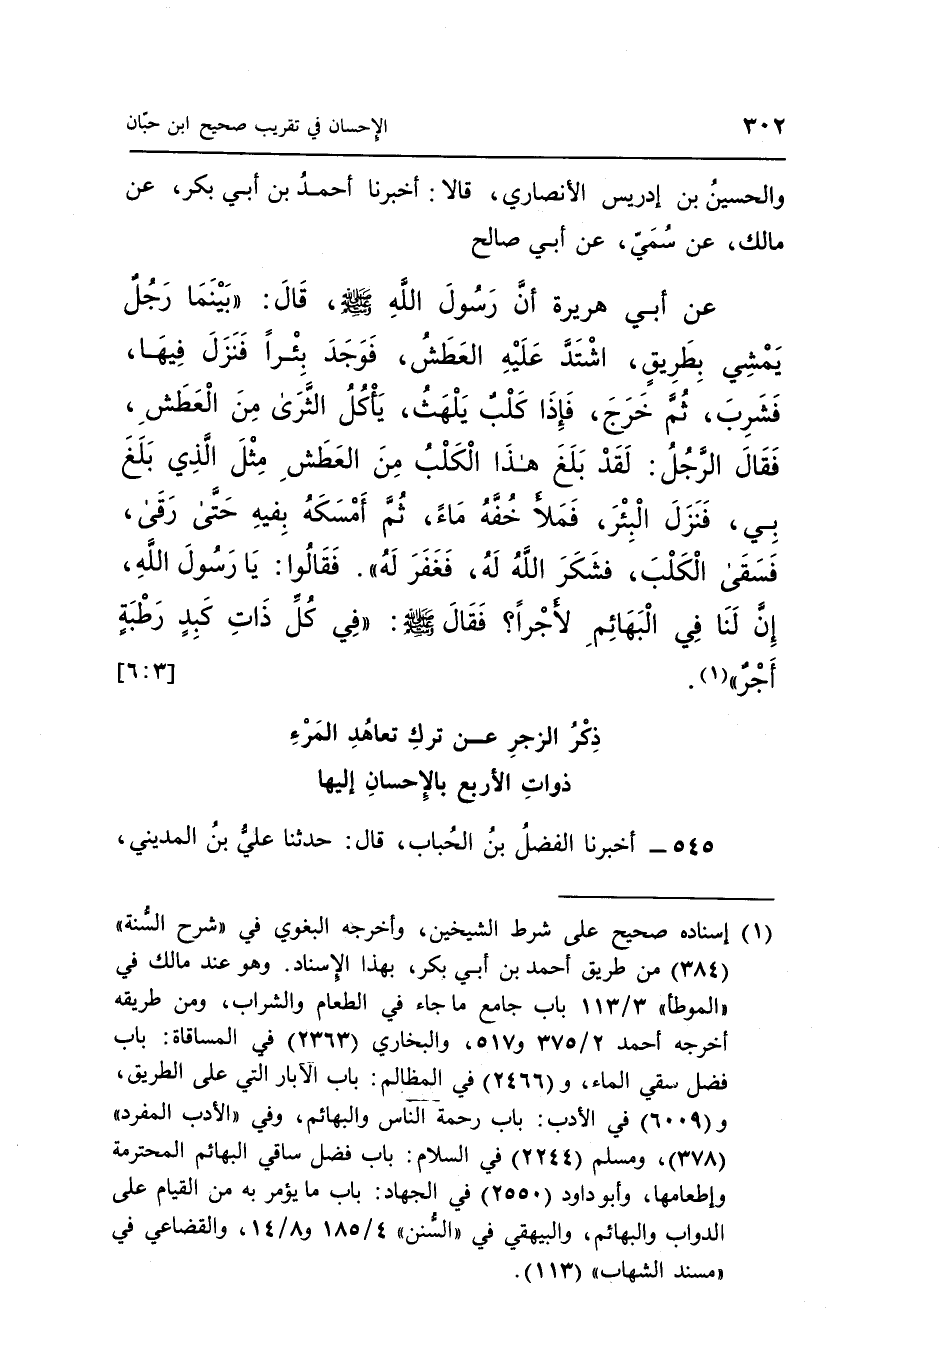 ٣٠٢ الإحسان في تقريب صحيح ابن حبّان
والحسينُ بن إدريس الأنصاري، قالا: أخبرنا أحمدُ بن أبي بكر، عن
مالك، عن سُمَيّ، عن أبي صالح
عن أبي هريرة أنَّ رَسُولَ اللَّهِ ﷺ، قَالَ: «بَيْنَمَا رَجُلٌ
يَمْشِي بِطَرِيقٍ، اشْتَدَّ عَلَيْهِ العَطَشُ، فَوَجَدَ بِئْراً فَنَزَلَ فِيهَا،
فَشَرِبَ، ثُمَّ خَرَجَ، فَإِذَا كَلْبٌ يَلْهَثُ، يَأْكُلُ الثَّرَىٰ مِنَ الْعَطَشِ،
فَقَالَ الرَّجُلُ: لَقَدْ بَلَغَ هٰذَا الْكَلْبُ مِنَ العَطَشِ مِثْلَ الَّذِي بَلَغَ
بِي، فَنَزَلَ الْبِئْرَ، فَمَلأَ خُفَّهُ مَاءً، ثُمَّ أَمْسَكَهُ بِفيهِ حَتَّىٰ رَقَىٰ،
فَسَقَىٰ الْكَلْبَ، فَشَكَرَ اللَّهُ لَهُ، فَغَفَرَ لَهُ». فَقَالُوا: يَا رَسُولَ اللَّهِ،
إِنَّ لَنَا فِي الْبَهَائِمِ لأَجْراً؟ فَقَالَ ﷺ: «فِي كُلِّ ذَاتِ كَبِدٍ رَطْبَةٍ
أَجْرٌ»(١). [٦:٣]
ذِكْرُ الزجرِ عن تركِ تعاهُدِ المَرْءِ
ذواتِ الأربع بالإحسانِ إليها
٥٤٥ ـ أخبرنا الفضلُ بنُ الحُباب، قال: حدثنا عليُّ بنُ المديني،
(١) إسناده صحيح على شرط الشيخين، وأخرجه البغوي في «شرح السُّنة»
(٣٨٤) من طريق أحمد بن أبي بكر، بهذا الإسناد. وهو عند مالك في
«الموطأ» ١١٣/٣ باب جامع ما جاء في الطعام والشراب، ومن طريقه
أخرجه أحمد ٣٧٥/٢ و٥١٧، والبخاري (٢٣٦٣) في المساقاة: باب
فضل سقي الماء، و (٢٤٦٦) في المظالم: باب الآبار التي على الطريق،
و (٦٠٠٩) في الأدب: باب رحمة الناس والبهائم، وفي «الأدب المفرد»
(٣٧٨)، ومسلم (٢٢٤٤) في السلام: باب فضل ساقي البهائم المحترمة
وإطعامها، وأبو داود (٢٥٥٠) في الجهاد: باب ما يؤمر به من القيام على
الدواب والبهائم، والبيهقي في «السُّنن» ١٨٥/٤ و١٤/٨، والقضاعي في
«مسند الشهاب» (١١٣).